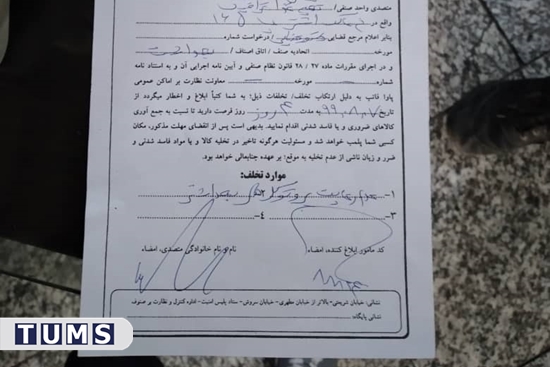 متصدی واحد صنفی/
واقع در
بنابر اعلام مرجع قضایی / درخواست شماره
مورخه اتحادیه صنف / اتاق اصناف / بهداشت
و در اجرای مقررات ماده ۲۷ / ۲۸ قانون نظام صنفی و آیین نامه اجرایی آن و به استناد نامه
شماره مورخه معاونت نظارت بر اماکن عمومی
پاوا فاتب به دلیل ارتکاب تخلف/ تخلفات ذیل؛ به شما کتباً ابلاغ و اخطار میگردد از
تاریخ ۹۹،۸،۷ به مدت روز فرصت دارید تا نسبت به جمع آوری
کالاهای ضروری و یا فاسد شدنی اقدام نمایید. بدیهی است پس از انقضای مهلت مذکور، مکان
کسبی شما پلمب خواهد شد و مسئولیت هرگونه تاخیر در تخلیه کالا و یا مواد فاسد شدنی و
ضرر و زیان ناشی از عدم تخلیه به موقع؛ بر عهده جنابعالی خواهد بود.
موارد تخلف:
۱- عدم رعایت پروتکلهای بهداشتی ۲-
۳- ۴-
کد مامور ابلاغ کننده، امضاء نام و نام خانوادگی متصدی، امضاء
نشانی: خیابان شریعتی- بالاتر از خیابان مطهری- خیابان سروش- ستاد پلیس امنیت - اداره کنترل و نظارت بر صنوف
نشانی پایگاه:
TUMS